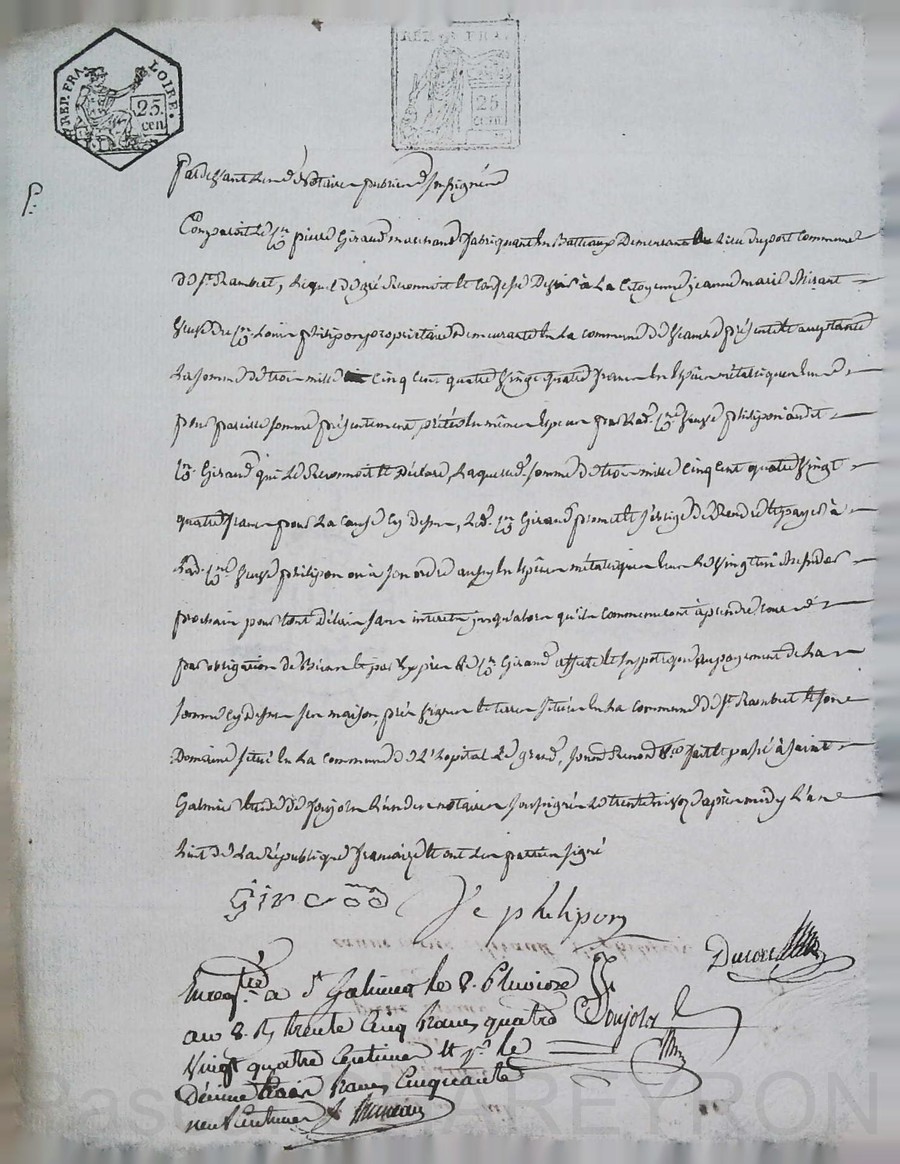 REP. FRA. LOIRE.
25. cen.
REP. FRA
25 CENT.
Pardevant les nres Notaires publics soussignés
Comparoit le cn pierre Giraud marchand fabriquant en Batteaux Demeurant au lieu du port Commune
de st Rambert, lequel de gré Reconnoit et Confesse Devoir à La Citoyenne jeanne marie
veuve du cn Louis philipon propriétaire demeurante en La commune de présente et acceptante
La somme de trois mille cinq cent quatre vingt quatre francs En Espèces métalliques
pour pareille somme présentement prêtée en même espèces par Lad. cne veuve philipon audit
cn Giraud qui Le Reconnoit et Déclare, Laquelle somme de trois mille cinq cent quatre vingt
quatre francs pour La cause Cy dessus, Led. cn Giraud promet et s'oblige de Rendre et payer à
Lad. cne veuve philipon ou à son ordre aussy En Espèces métalliques
prochain pour tout délai sans interet jusqu'alors qu'ils commenceront à prendre cours
par obligation de Biens et par Exprès Le cn Giraud affecte et hypotèque au payement de La
somme Cy dessus ses maison, prés vignes et terres situés En La commune de st Rambert et son
Domaine situé En La commune de L'hopital Le grand, fait et passé à saint
Galmier étude de Doujols L'un des notaires soussignés Le trente nivoz après midy L'an
huit de La République française et ont Les parties signé
Giraud
Ve philipon
Enregtré a St Galmier le 8. Pluviose
an 8. R, trente cinq francs quatre
Vingt quatre Centimes et pr le
Décime trois francs Cinquante
neuf Centimes
Doujols
P.
MAREYRON